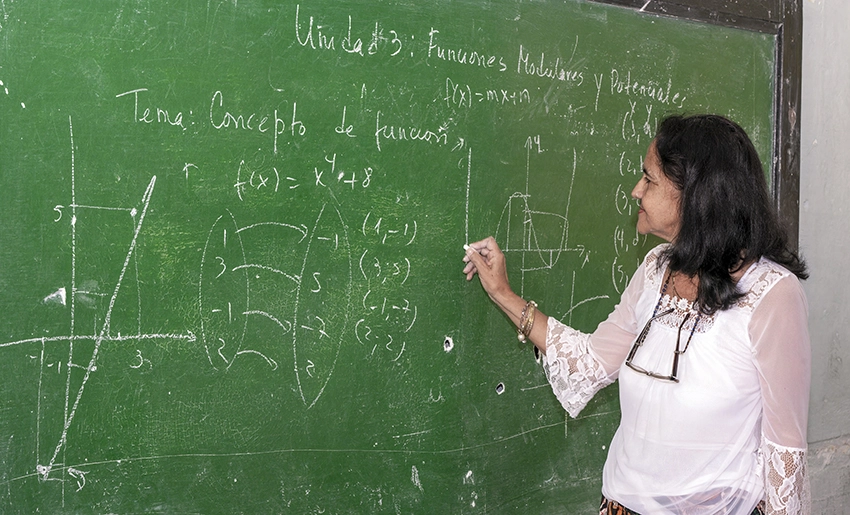 Unidad 3: Funciones Modulares y Potenciales
f(x)=mx+n
Tema: Concepto de función
f(x) = x⁴+8
1 -1 (1,-1)
3 5 (3,5)
-1 -2 (-1,-2)
2 2 (2,2)
5
-1 3
y
x